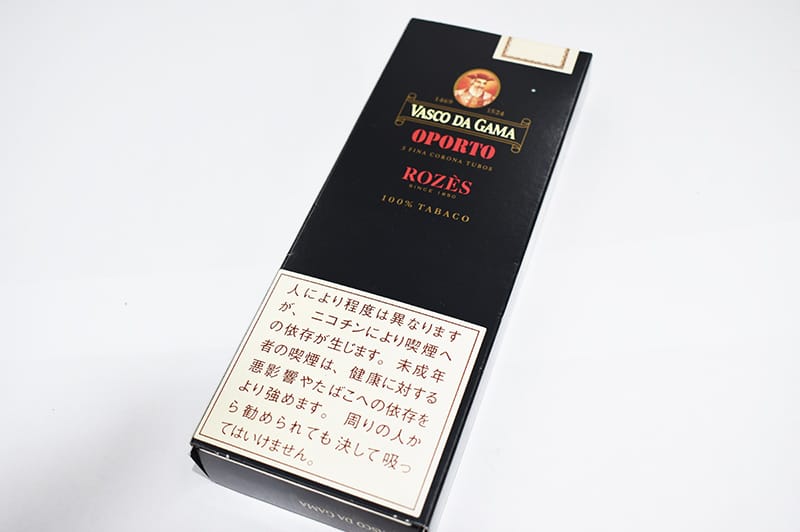 1469 1524
VASCO DA GAMA
OPORTO
5 FINA CORONA TUBOS
ROZÈS
SINCE 1850
100% TABACO
人により程度は異なります
が、ニコチンにより喫煙へ
の依存が生じます。未成年
者の喫煙は、健康に対する
悪影響やたばこへの依存を
より強めます。周りの人か
ら勧められても決して吸っ
てはいけません。
VASCO DA GAMA